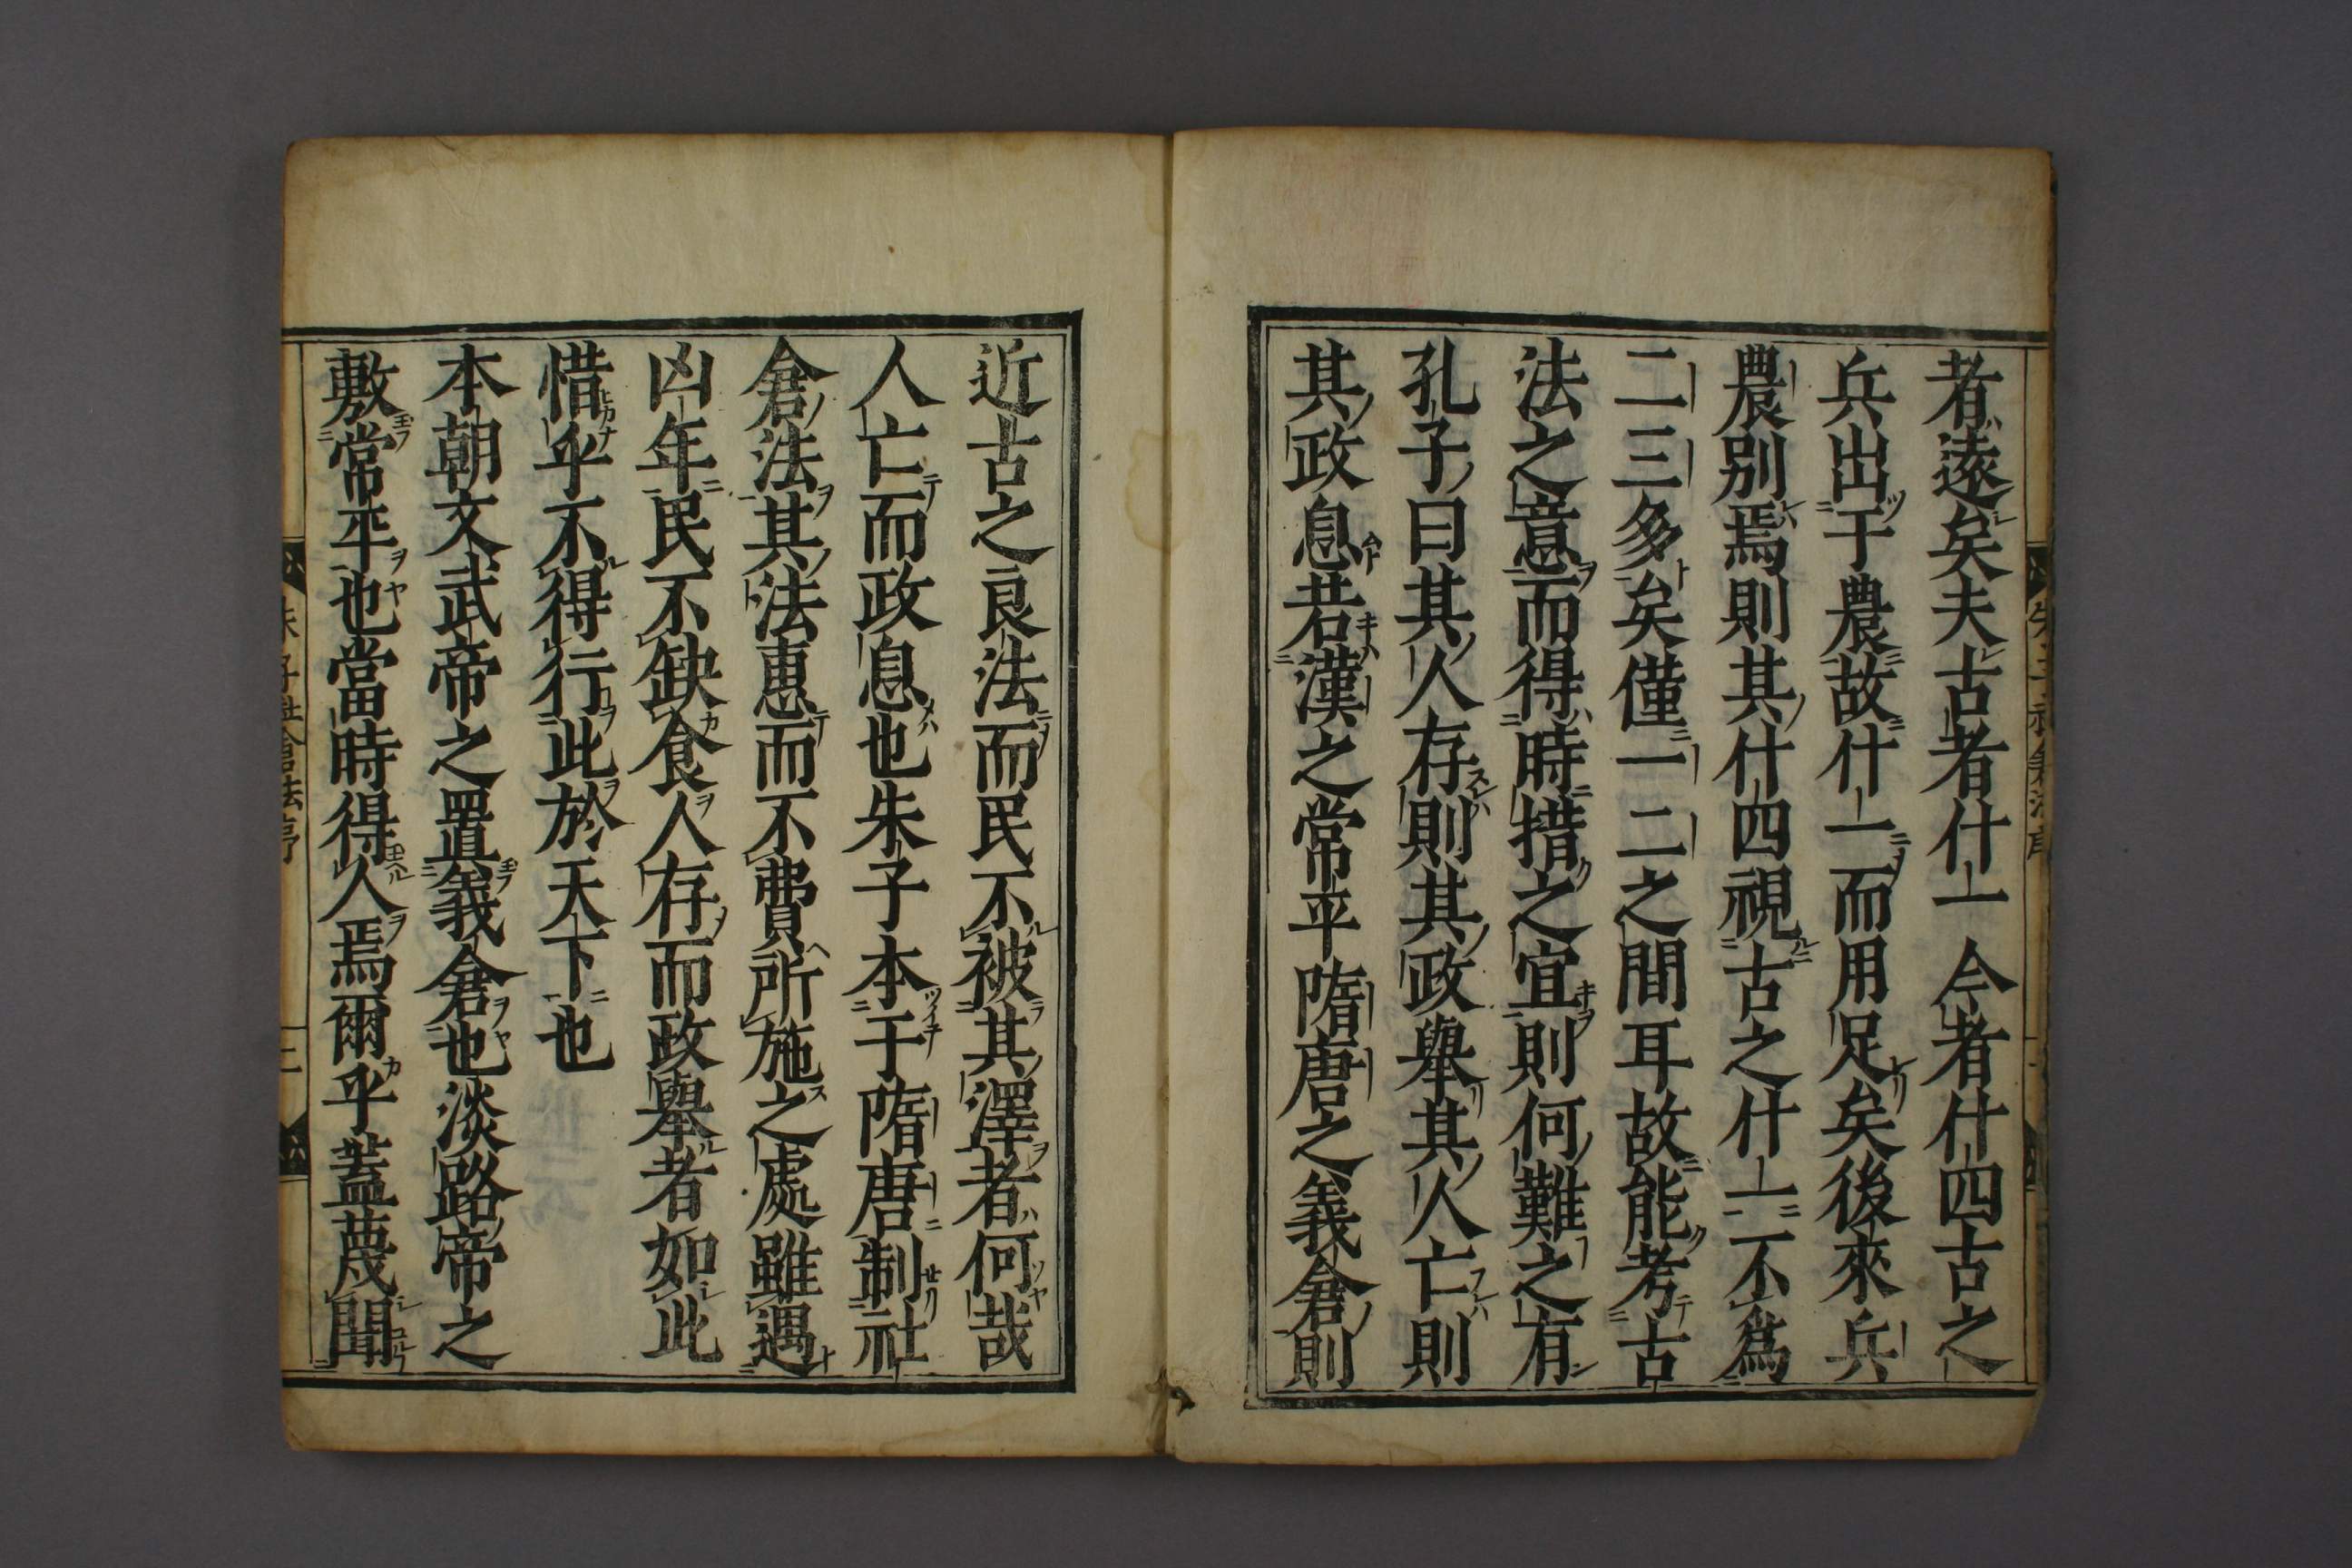 者遠矣夫古者什一今者什四古之
兵出于農故什一而用足矣後來兵
農別焉則其什四視古之什一不爲
二三多矣僅一二之間耳故能考古
法之意而得時措之宜則何難之有
孔子曰其人存則其政舉其人亡則
其政息若漢之常平隋唐之義倉則
近古之良法而民不被其澤者何哉
人亡而政息也朱子本于隋唐制社
倉法其法惠而不費所施之處雖遇
凶年民不缺食人存而政舉者如此
惜乎不得行此於天下也
本朝文武帝之置義倉也淡路帝之
敷常平也當時得人焉爾乎蓋蔑聞
朱子社倉法序
二